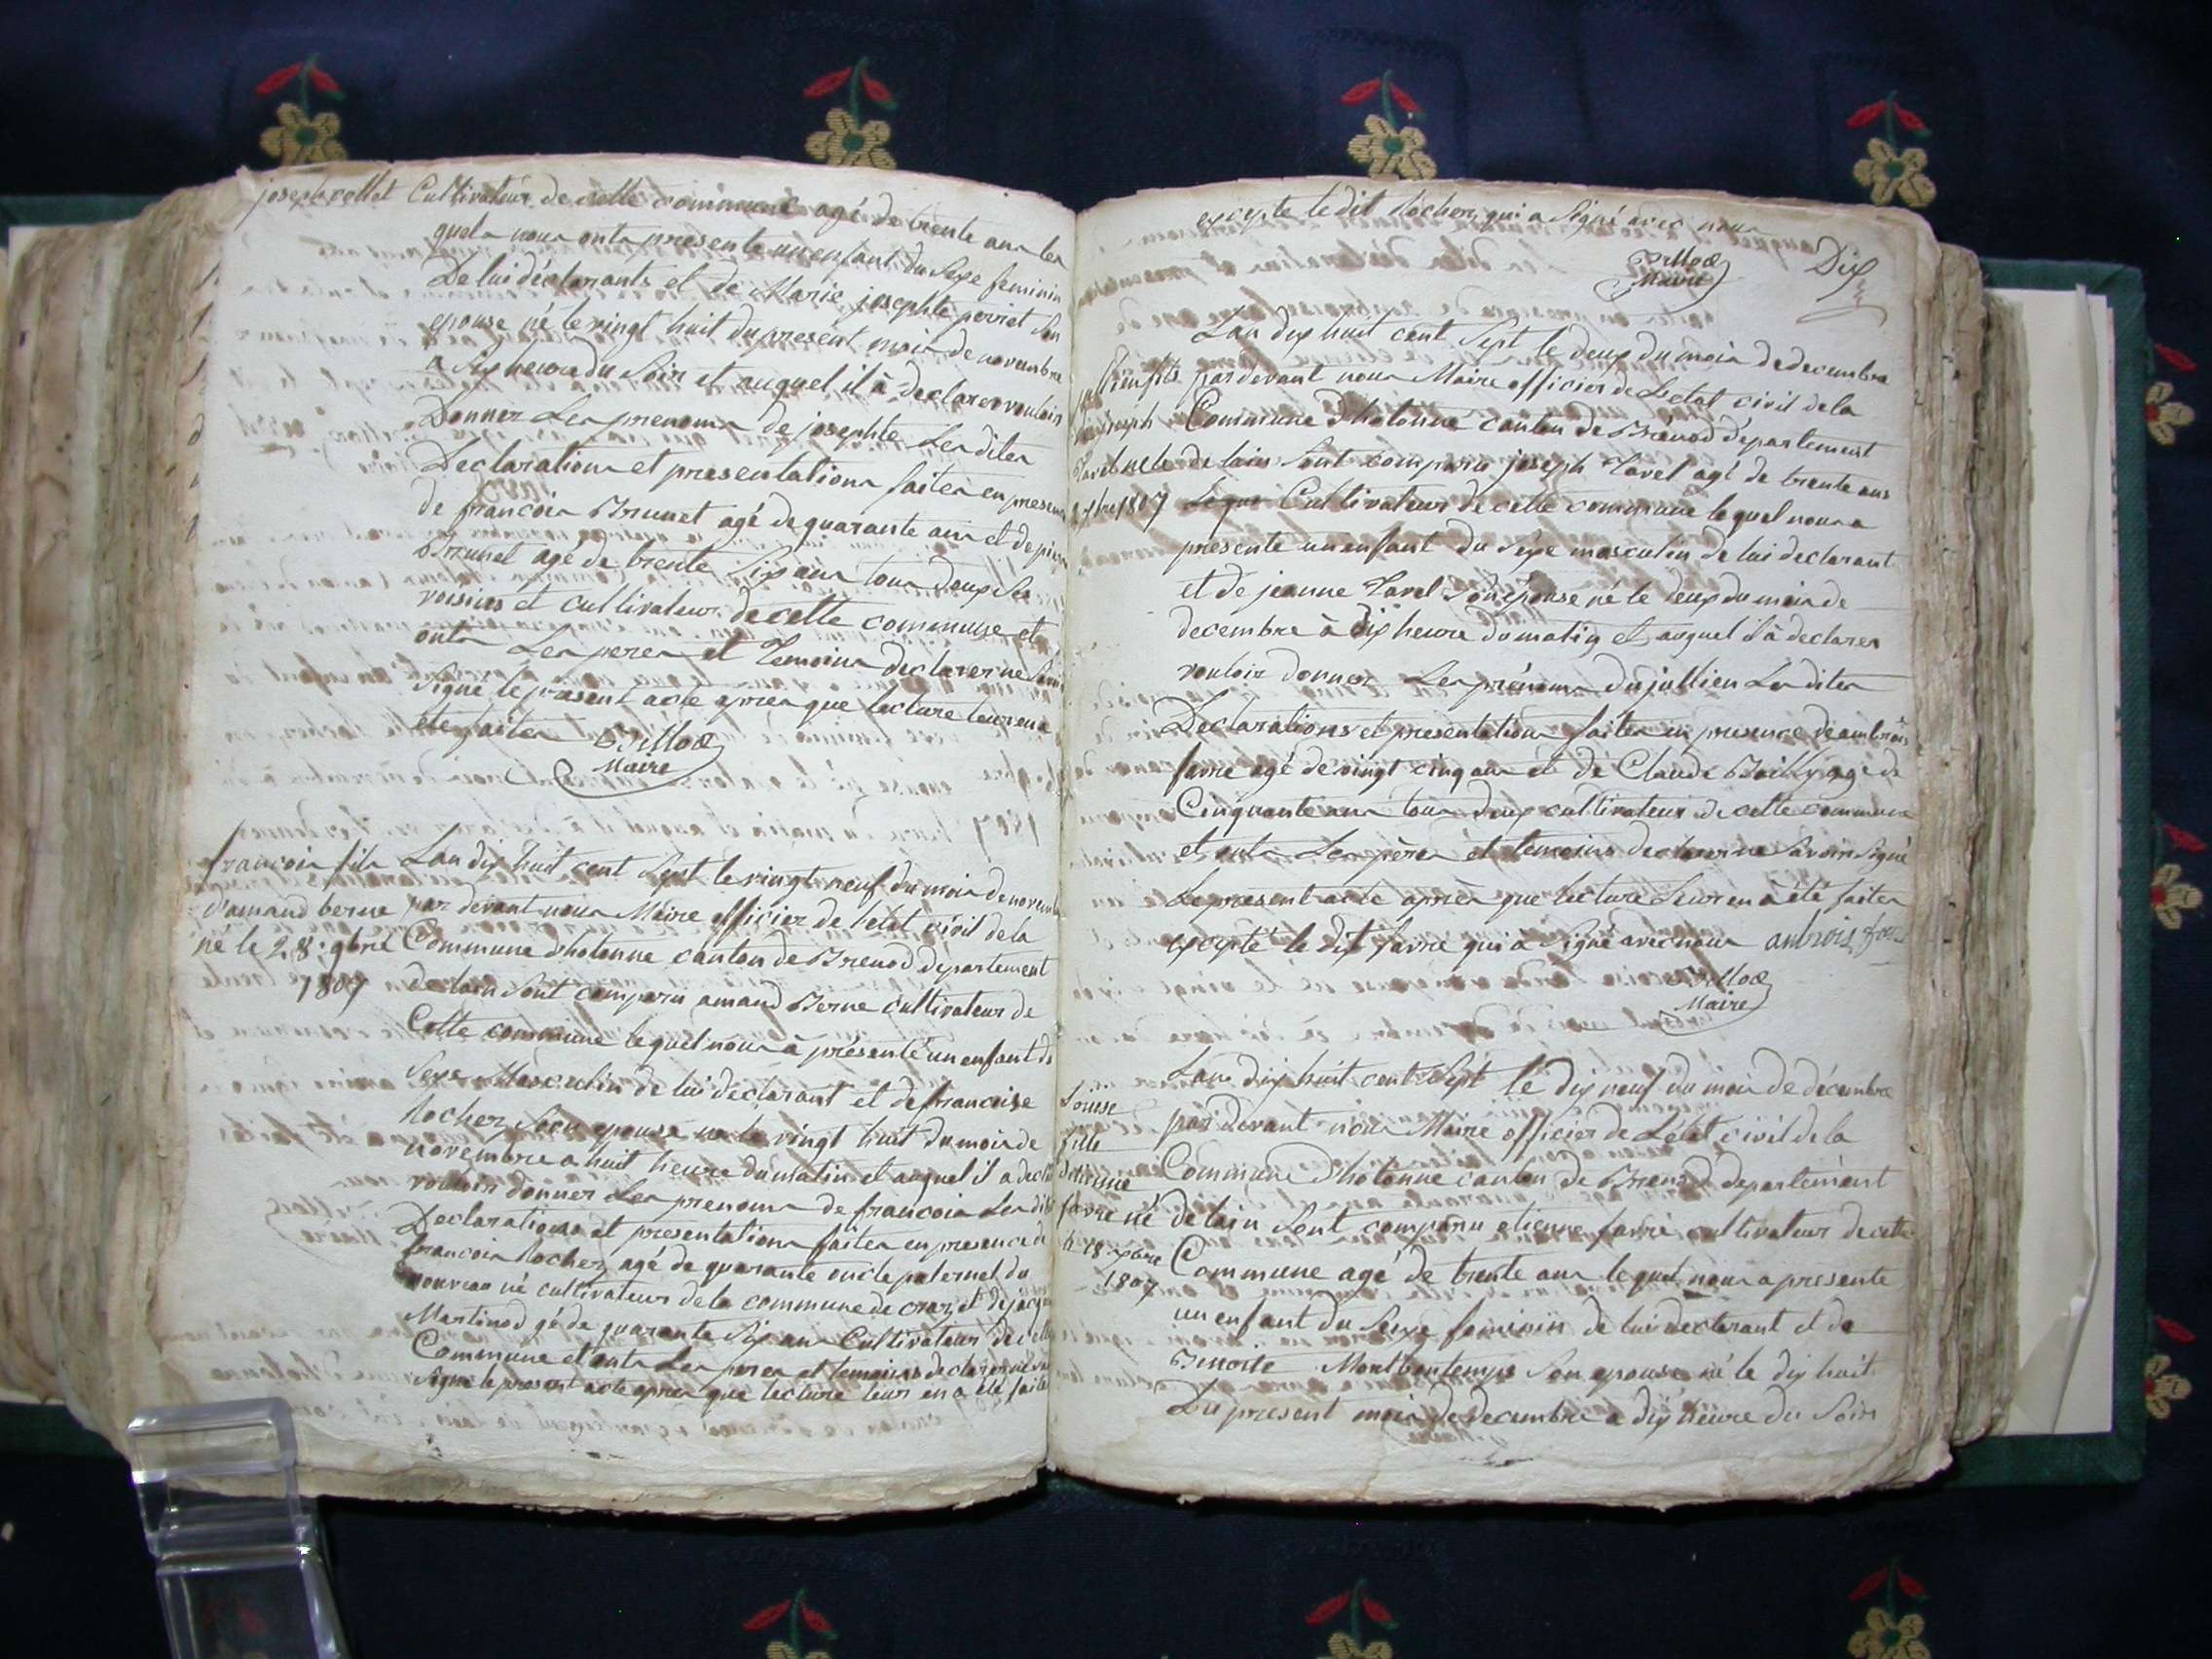 joseph collet Cultivateur de cette commune agé de trente ans les
quels nous onts presente un enfant du Sexe feminin
De lui déclarants et de Marie josephte perret Son
epouse né le vingt huit du present mois de novembre
a Six heure du Soir et auquel il à declarer vouloir
Donner Les prenoms de josephte Les dites
Declarations et presentations faites en presence
de francois Brunet agé de quarante ans et de pierre
Brunet agé de trente Six ans tous deux Ses
voisins et cultivateur de cette commune et
onts Les peres et Temoins declarer ne Savoir
Signé le present acte apres que lecture leur en a
étés faites
Maire
francois fils
d'amand berne
né le 28 9bre
1807
Lan dix huit cent Sept le vingt neuf du mois de novembre
par devant nous Maire officier de letat civil de la
Commune dhotonne canton de Brenod departement
de lain Sont comparu amand Berne cultivateur de
Cette commune lequel nous à présenté un enfant du
Sexe Masculin de lui declarant et de francoise
Rocher Son epouse né le vingt huit du mois de
novembre a huit heure du matin et auquel il a declarer
vouloir donner Les prenoms de francois Les dites
Declarations et presentations faites en presence de
francois Rocher agé de quarante oncle paternel du
nouveau né cultivateur de la commune de et de jacques
Martinod gé de quarante Six ans Cultivateur de cette
Commune et onts Les peres et temoins declarer ne
Signe le present acte apres que lecture leur en a été faites
excepte le dit Rocher qui a Signé avec nous
Maire
Dix
jullien fils
de joseph
Tavel né le
2 xbre 1807
Lan dix huit cent Sept le deux du mois de decembre
par devant nous Maire officier de Letat civil de la
Commune Dhotonne canton de Brénod département
de lain Sont comparu joseph Tavel agé de trente ans
Cultivateur de cette commune lequel nous a
presente un enfant du Sexe masculin de lui declarant
et de jeanne Tavel Son épouse né le deux du mois de
decembre à dix heure du matin et auquel il à declarer
vouloir donner Les prénoms du jullien Les dites
Declarations et presentations faites en presence de ambrois
favre agé de vingt cinq ans et de Claude Bailly agé de
Cinquante ans tous deux cultivateur de cette commune
et onts Les pères et temoins declarer ne Savoir Signé
Le present acte après que lecture Leur en à été faites
excepté le dit favre qui a Signé avec nous ambrois
Maire
Louise
fille
detienne
favre né
le 18 xbre
1807
Lan dix huit cent Sept le dix neuf du mois de décembre
par devant nous Maire officier de Létat civil de la
Commune Dhotonne canton de Brenod departement
de lain Sont comparu etienne favre cultivateur de cette
Commune agé de trente ans lequel nous a presente
un enfant du Sexe feminin de lui declarant et de
Benoite Montbontemps Son epouse né le dix huit
Du present mois de decembre a dix heure du Soir